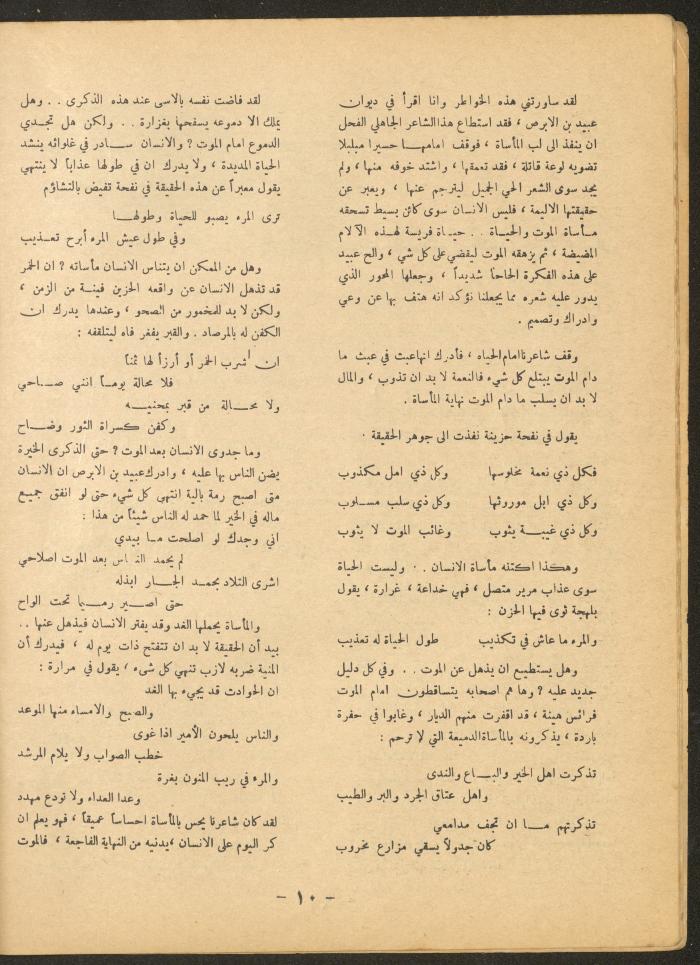 لقد ساورتني هذه الخواطر وانا اقرأ في ديوان
عبيد بن الابرص ، فقد استطاع هذا الشاعر الجاهلي الفحل
ان ينفذ الى لب المأساة ، فوقف امامهـا حسيرا مبلبلا
تضويه لوعة قاتلة ، فقد تعمقها ، واشتد خوفه منها ، ولم
يجد سوى الشعر الحي الجميل ليترجم عنها ، ويعبر عن
حقيقتها الاليمة ، فليس الانسان سوى كائن بسيط تسحقه
مـأساة الموت والحيـاة . . حيـاة فريسة لهـذه الآلام
المضيضة ، ثم يزهقه الموت ليقضي على كل شي ، والح عبيد
على هذه الفكرة الحاحاً شديداً ، وجعلها المحور الذي
يدور عليه شعره مما يجعلنا نؤكد انه هتف بها عن وعي
وادراك وتصميم .
وقف شاعرنا امام الحياه ، فأدرك انها عبث في عبث ما
دام الموت يبتلع كل شيء فالنعمة لا بد ان تذوب ، والمال
لا بد ان يسلب ما دام الموت نهاية المأساة .
يقول في نفحة حزينة نفذت الى جوهر الحقيقة .
فكل ذي نعمة مخلوسها وكل ذي امل مكذوب
وكل ذي ابل موروثها وكل ذي سلب مسـلوب
وكل ذي غيبـة يثوب وغائب الموت لا يثوب
وهكذا اكتنه مأساة الانسان . . وليست الحياة
سوى عذاب مرير متصل ، فهي خداعة ، غرارة ، يقول
بلهجة ثوى فيها الحزن :
والمرء ما عاش في تكذيب طول الحياة له تعذيب
وهل يستطيـع ان يذهل عن الموت . . وفي كل دليل
جديد عليه ? وها هم اصحابه يتساقطون امام الموت
فرائس هينة ، قد اقفرت منهم الديار ، وغابوا في حفرة
باردة ، يذكرونه بالمأساة الدميعة التي لا ترحم :
تذكرت اهل الخير والبـاع والندى
واهل عتاق الجرد والبر والطيب
تذكرتهم مـا ان تجف مدامعي
كان جدولاً يسقي مزارع مخروب
لقد فاضت نفسه بالاسى عند هذه الذكرى . . وهل
يملك الا دموعه يسفحها بغزارة . . ولكن هل تجـدي
الدموع امام الموت ? والانسان سـادر في غلوائه ينشد
الحياة المديدة ، ولا يدرك ان في طولها عذاباً لا ينتهي
يقول معبراً عن هذه الحقيقة في نفحة تفيض بالتشاؤم
ترى المرء يصبو للحياة وطولهـا
وفي طول عيش المرء أبرح تعـذيب
وهل من الممكن ان يتناس الانسان مأساته ? ان الخمر
قد تذهل الانسان عن واقعه الحزين فينـة من الزمن ،
ولكن لا بد للمخمور من الصحو ، وعندها يدرك ان
الكفن له بالمرصاد . والقبر يفغر فاه ليتلقفه :
ان أشرب الخمر أو أرزأ لها ثمناً
فلا محالة يومـاً انني صـاحي
ولا محـالة من قبر بمحنيـه
وكفن كسراة الثور وضـاح
وما جدوى الانسان بعد الموت ? حتى الذكرى الخيرة
يضن الناس بها عليه ، وادرك عبيد بن الابرص ان الانسان
متى اصبح رمة بالية انتهى كل شيء حتى لو انفق جميـع
ماله في الخير لما حمد له الناس شيئاً من هذا :
اني وجدك لو اصلحت مـا بيدي
لم يحمد النـاس بعد الموت اصلاحي
اشرى التلاد بحمـد الجـار ابذله
حتى اصـير رميـما تحت الواح
والمأساة يحملها الغد وقد يفتر الانسان فيذهل عنها . .
بيد أن الحقيقة لا بد ان تتفتح ذات يوم له ، فيدرك أن
المنية ضربه لازب تنهي كل شيء ، يقول في مرارة :
ان الحوادث قد يجيء بها الغد
والصبح والامساء منها الموعد
والناس يلحون الأمير اذا غوى
خطب الصواب ولا يلام المرشد
والمرء في ريب المنون بغرة
وعدا العداء ولا تودع مهدد
لقد كان شاعرنا يحس بالمأساة احساساً عميقاً ، فهو يعلم ان
كر اليوم على الانسان ، يدنيه من النهاية الفاجعة ، فالموت
– ١٠ –